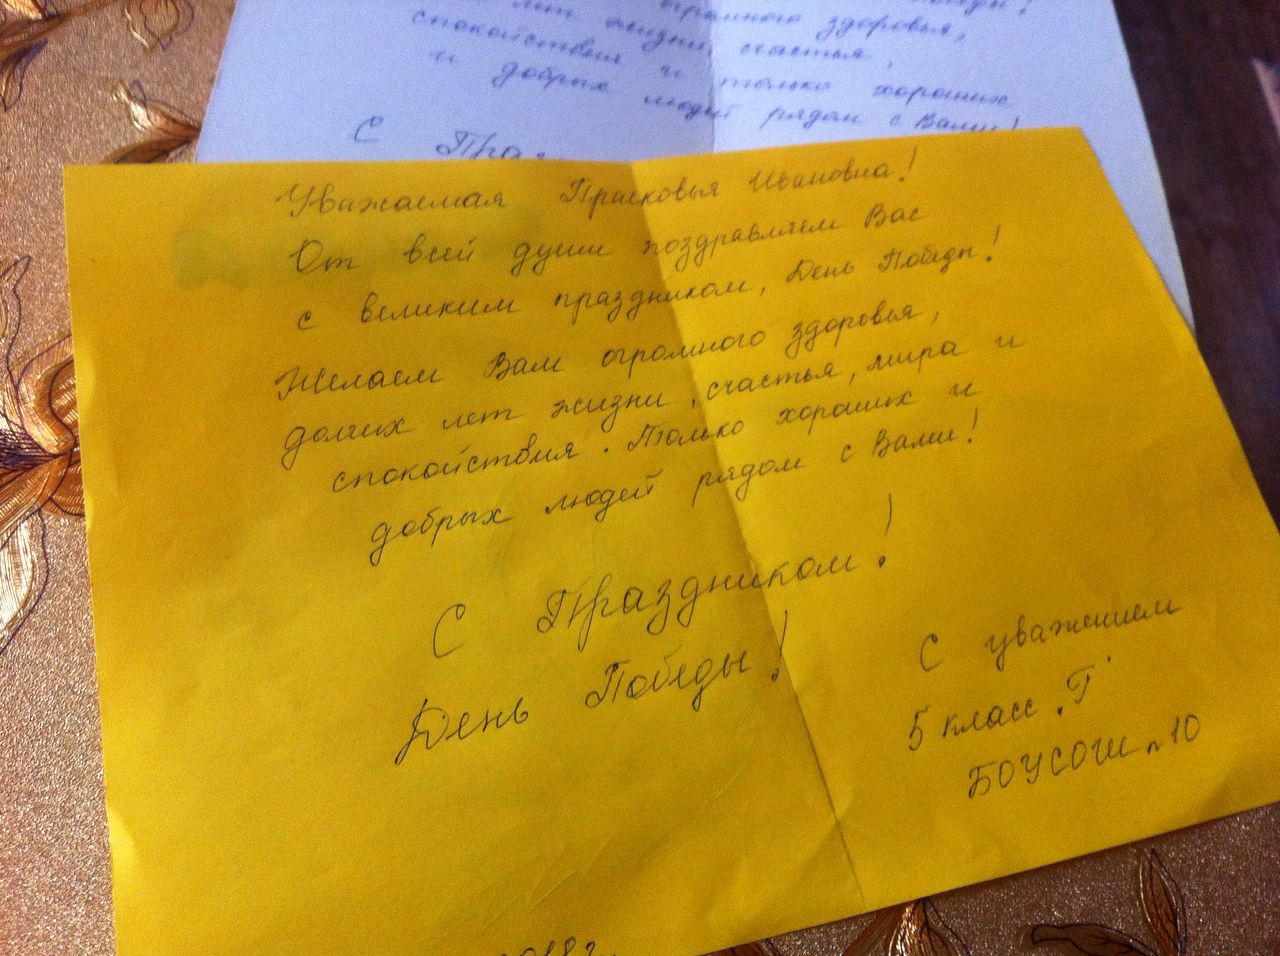 лет жизни, огромного здоровья,
спокойствия и счастья,
и добрых и только хороших
людей рядом с Вами!
С Пра
Уважаемая Прасковья Ивановна!
От всей души поздравляем Вас
с великим праздником, День Победы!
Желаем Вам огромного здоровья,
долгих лет жизни, счастья, мира и
спокойствия. Только хороших и
добрых людей рядом с Вами!
С Праздником!
День Победы!
С уважением
5 класс "Г"
БОУСОШ №10
2018 г.